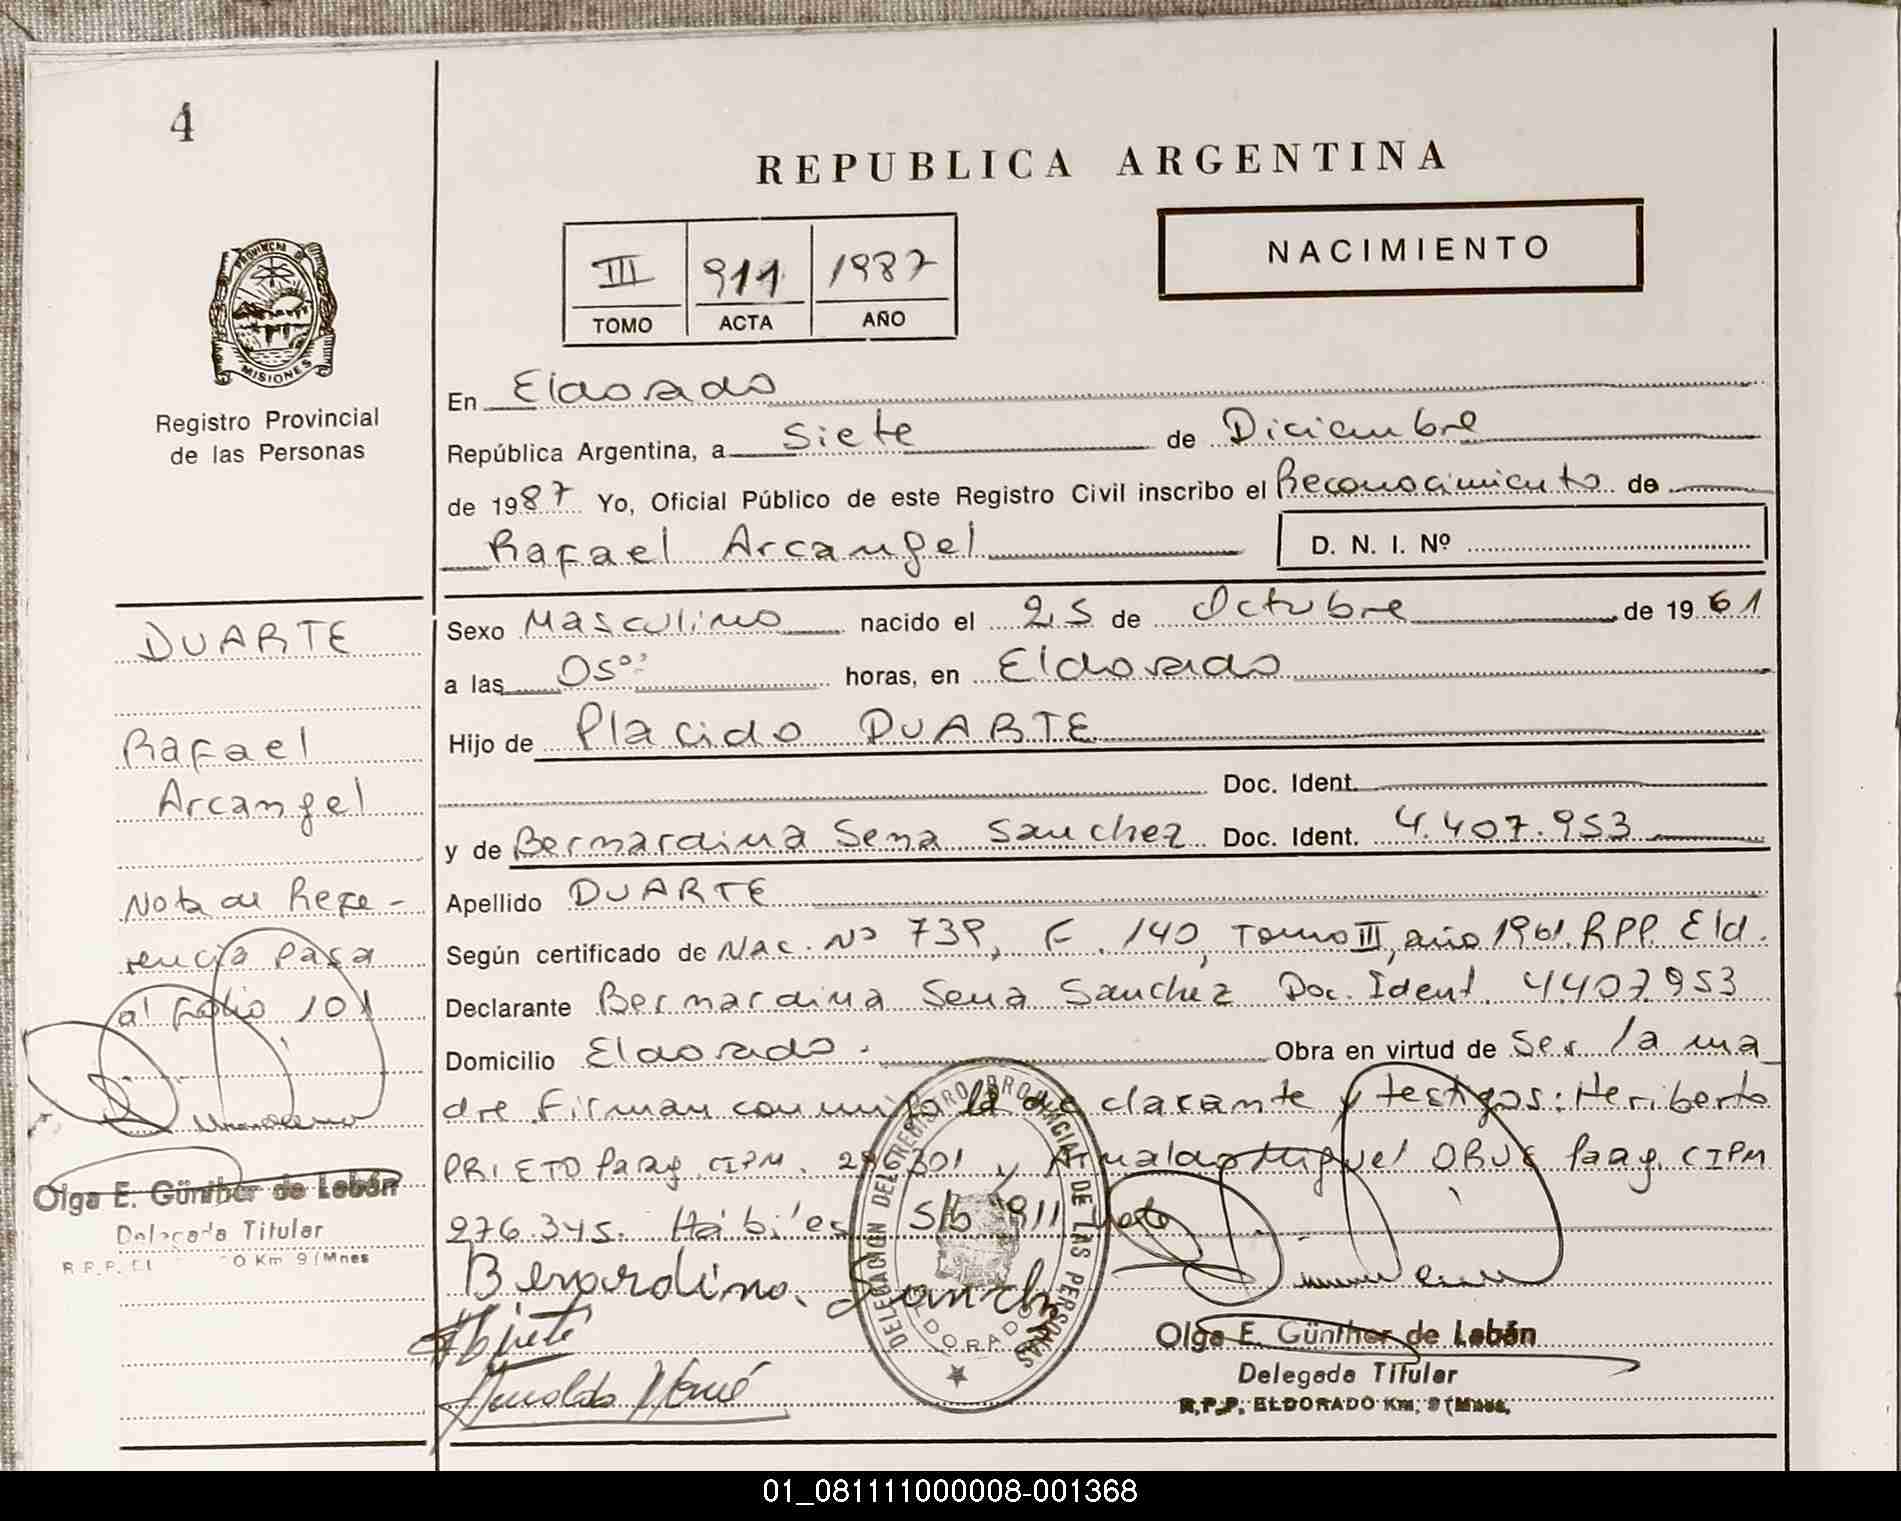 4
REPUBLICA ARGENTINA
III 911 1987
TOMO ACTA AÑO
NACIMIENTO
PROVINCIA DE
MISIONES
Registro Provincial
de las Personas
En Eldorado
República Argentina, a Siete de Diciembre
de 1987 Yo, Oficial Público de este Registro Civil inscribo el Reconocimiento de
Rafael Arcangel D. N. I. Nº
DUARTE
Rafael
Arcangel
Nota de Refe-
rencia pasa
al Folio 101
Olga E. Günther de Lebán
Delegada Titular
R.P.P. El O Km 9 (Mnes
Sexo Masculino nacido el 25 de Octubre de 1961
a las 05º: horas, en Eldorado
Hijo de Placido DUARTE
Doc. Ident.
y de Bernardina Sena Sanchez Doc. Ident. 4.407.953
Apellido DUARTE
Según certificado de Nac. Nº 739, F. 140, Tomo III, año 1961. RPP. Eld.
Declarante Bernardina Sena Sanchez Doc. Ident. 4407.953
Domicilio Eldorado. Obra en virtud de Ser la ma
dre. Firman conmigo la declarante y testigos: Heriberto
PRIETO Parag. CIPM. 296301 y Arnaldo Miguel Parag. CIPM
276.345. Hábiles S/b 911
Berardina Sanche
Arnoldo
DELEGACION DEL REGISTRO PROVINCIAL DE LAS PERSONAS
ELDORADO
Olga E. Günther de Lebán
Delegada Titular
R.P.P. ELDORADO Km. 9 (Mnes.
01_081111000008-001368